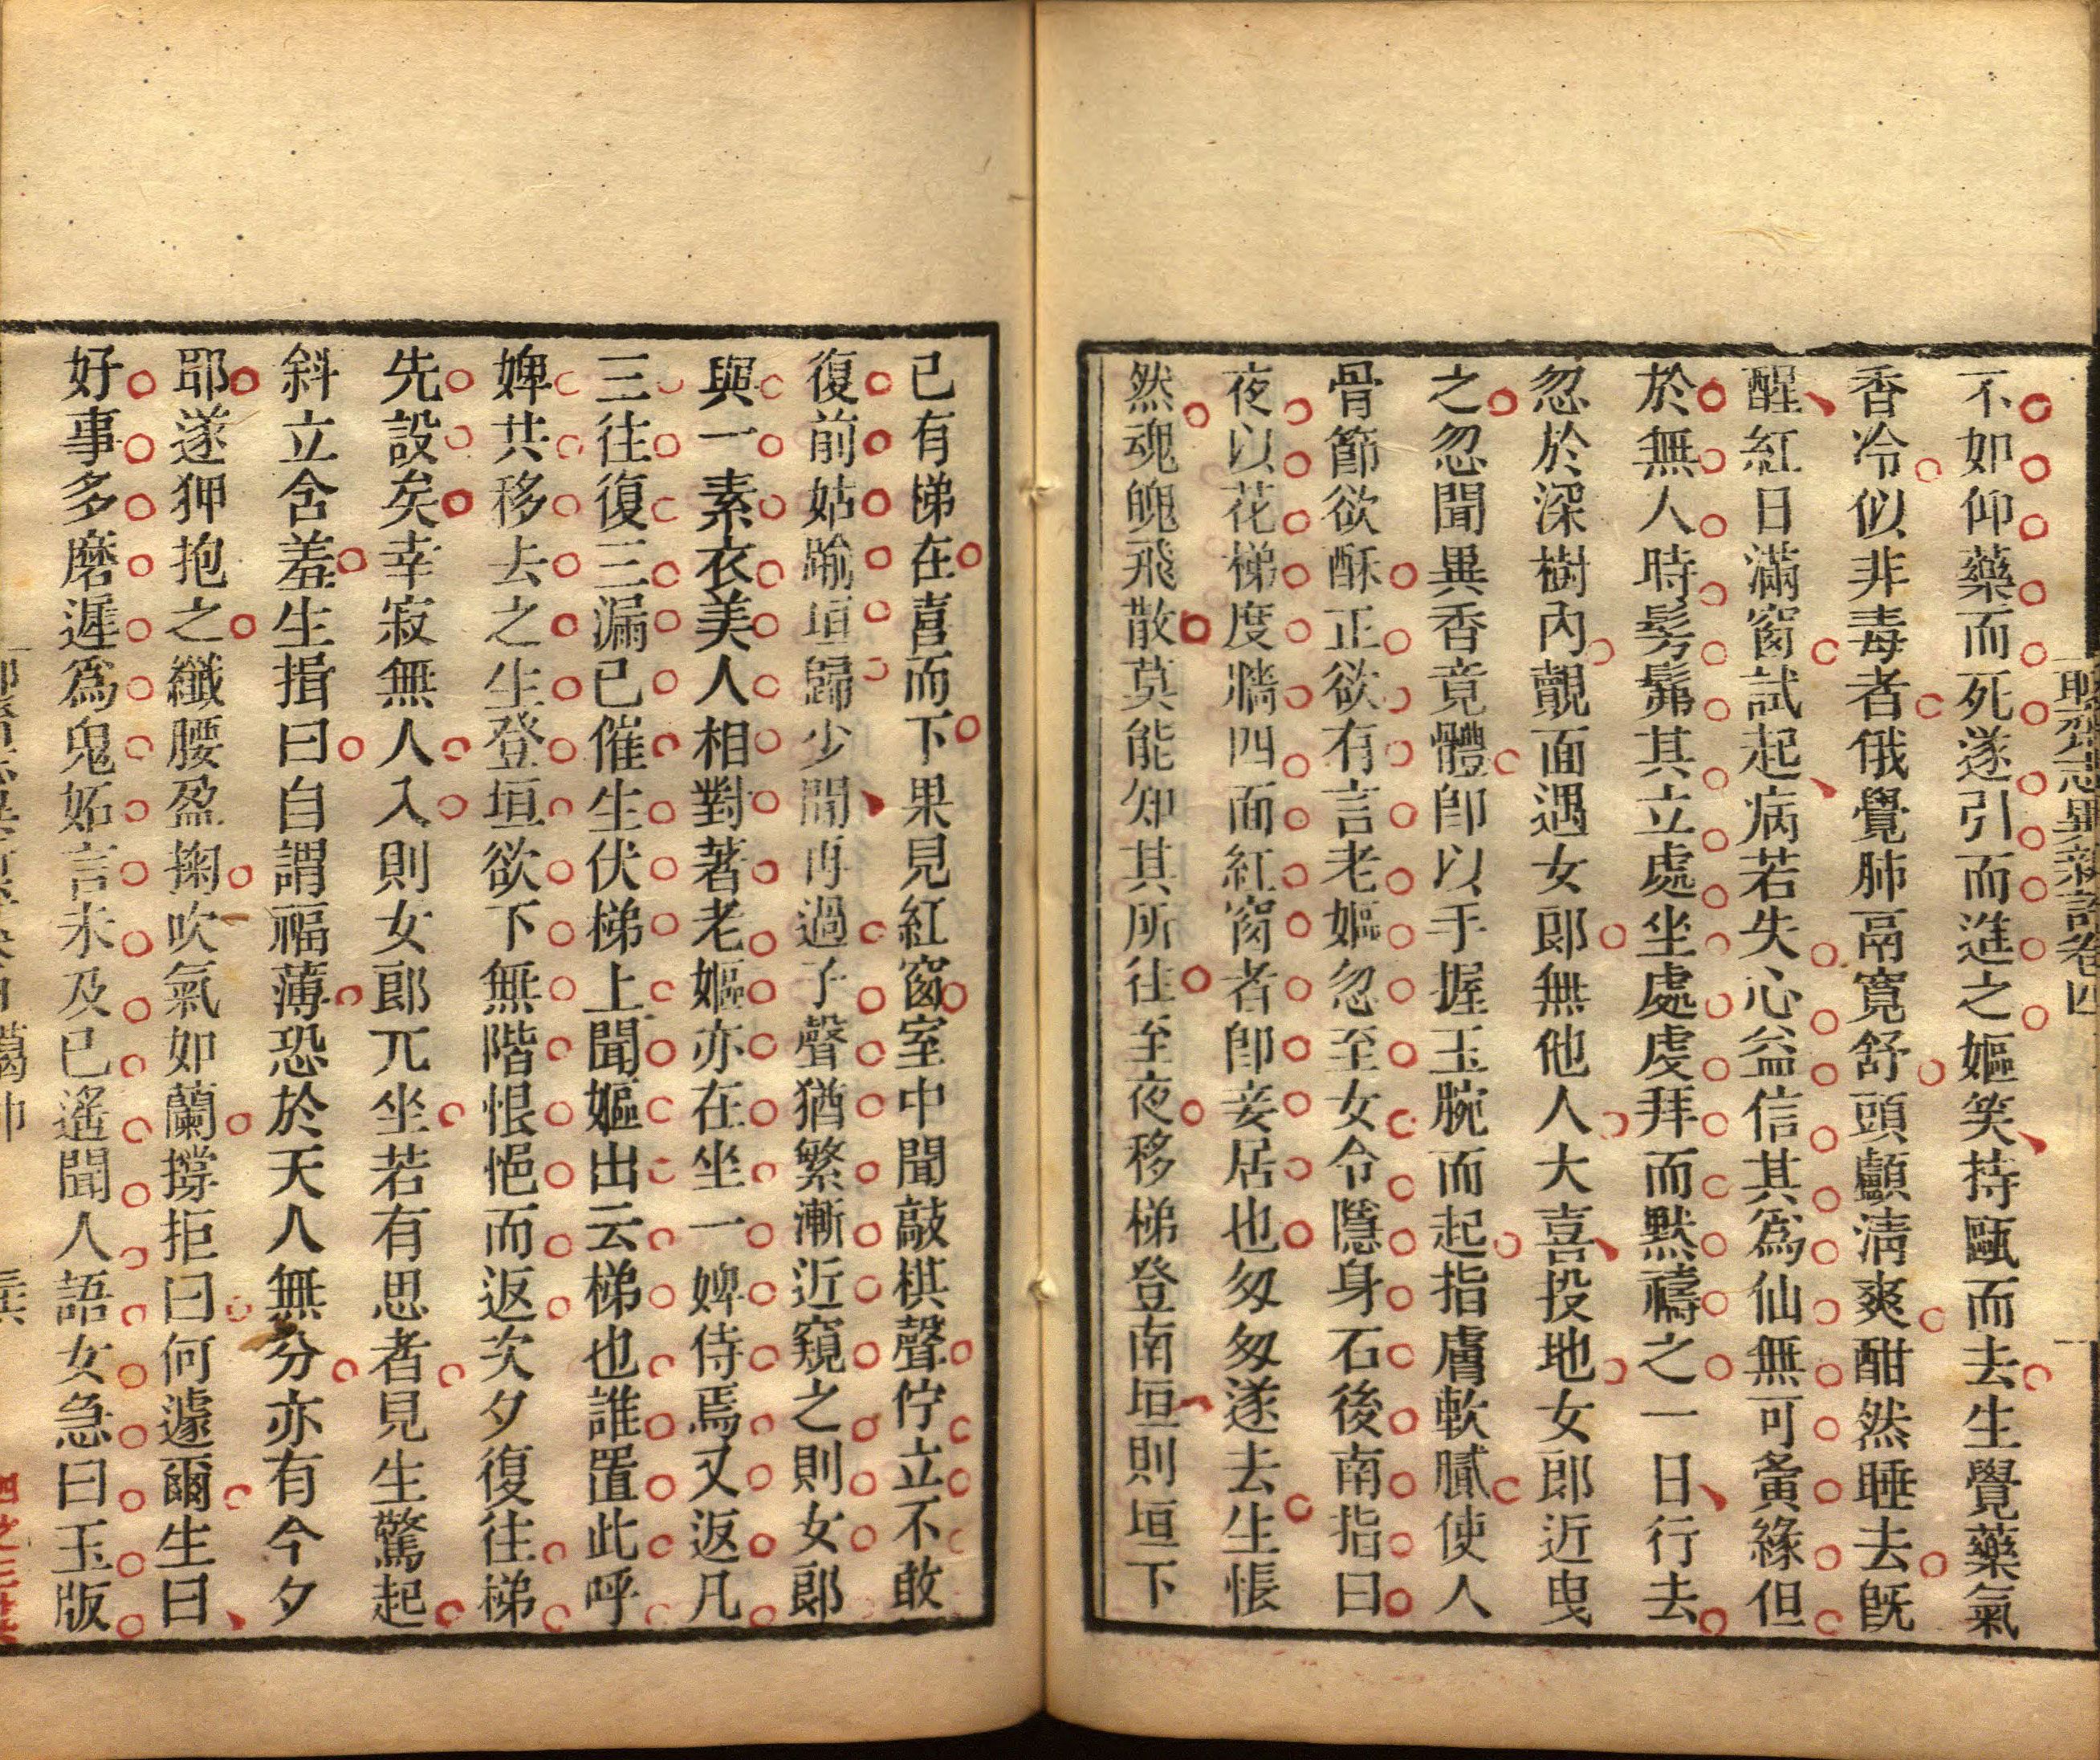 不如仰藥而死遂引而進之嫗笑持甌而去生覺藥氣
香冷似非毒者俄覺肺鬲寬舒頭顱淸爽酣然睡去旣
醒紅日滿窗試起病若失心益信其爲仙無可夤緣但
於無人時髣髴其立處坐處虔拜而默禱之一日行去
忽於深樹內覿面遇女郎無他人大喜投地女郎近曳
之忽聞異香竟體卽以手握玉腕而起指膚軟膩使人
骨節欲酥正欲有言老嫗忽至女令隱身石後南指曰
夜以花梯度牆四面紅窗者卽妾居也匆匆遂去生悵
然魂魄飛散莫能知其所往至夜移梯登南垣則垣下
已有梯在喜而下果見紅窗室中聞敲棋聲佇立不敢
復前姑踰垣歸少間再過子聲猶繁漸近窺之則女郎
與一素衣美人相對著老嫗亦在坐一婢侍焉又返凡
三往復三漏已催生伏梯上聞嫗出云梯也誰置此呼
婢共移去之生登垣欲下無階恨悒而返次夕復往梯
先設矣幸寂無人入則女郎兀坐若有思者見生驚起
斜立含羞生揖曰自謂福薄恐於天人無分亦有今夕
耶遂狎抱之纖腰盈掬吹氣如蘭撐拒曰何遽爾生曰
好事多磨遲爲鬼妬言未及已遙聞人語女急曰玉版